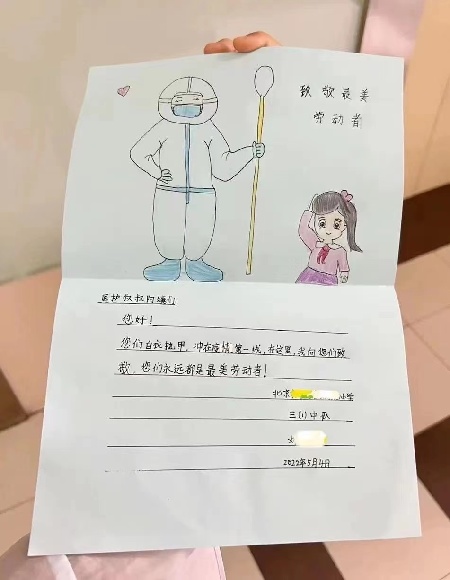 致敬最美
劳动者
医护叔叔阿姨们
您好！
您们白衣执甲，冲在疫情第一线，在这里，我向您们致
敬，您们永远都是最美劳动者！
北京
小学
三(1)中队
2022年5月4日